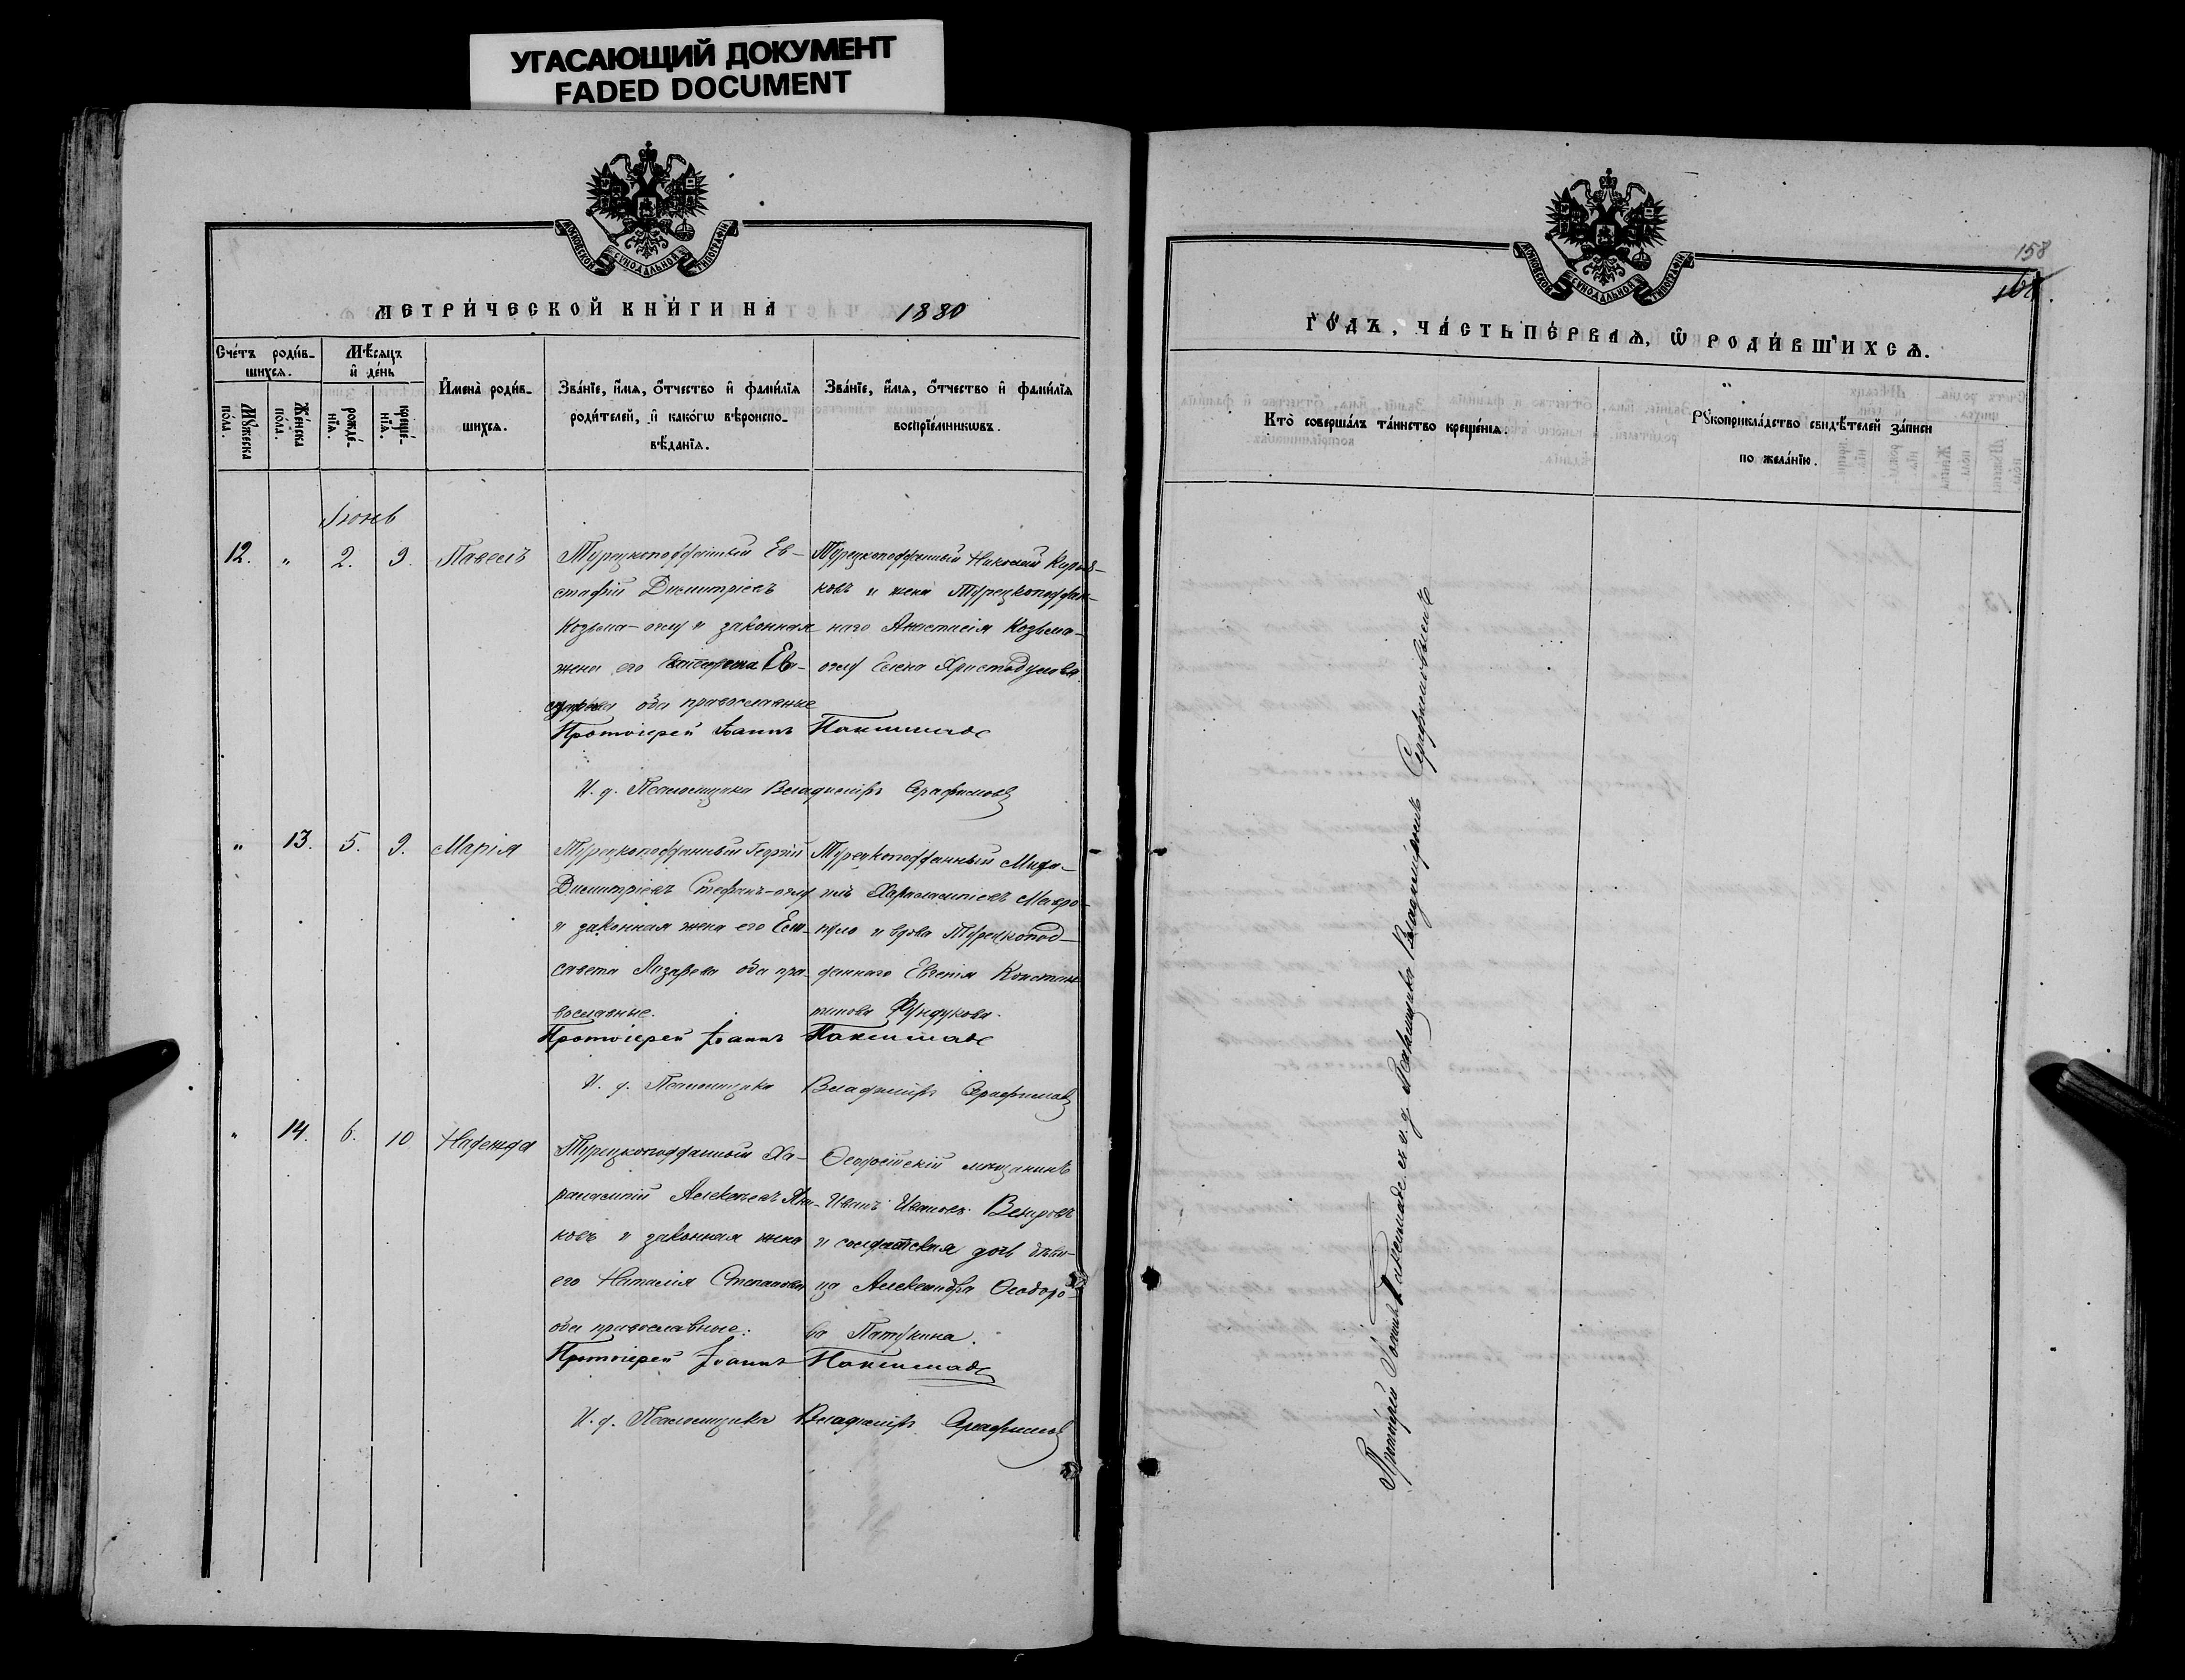 УГАСАЮЩИЙ ДОКУМЕНТ
FADED DOCUMENT
МОСКОВСКОЙ СѴНОДАЛЬНОЙ ТИПОГРАФІИ
МЕТРИ́ЧЕСКОЙ КНИ́ГИ НА 1880
Сче́тъ роди́в-
шихся.
Мꙋ́жеска
по́ла.
Же́нска
по́ла.
Мѣ́сяцъ
и҆ де́нь
рожде́-
нїѧ.
креще́-
нїѧ.
И҆мена̀ роди́в-
шихся.
Зва́нїе, и҆́мѧ, ѻ҆́тчество и҆ фами́лїѧ
роди́телей, и҆ како́гѡ вѣроиспо-
вѣ́данїѧ.
Зва́нїе, и҆́мѧ, ѻ҆́тчество и҆ фами́лїѧ
воспрїе́мникѡвъ.
Іюнь
12. " 2. 9. Павелъ
Турецкоподданный Ев-
стафій Димитріевъ
Козьма-оглу и законная
жена его Ев-
оба православные
Турецкоподданный Николай
ковъ и жена Турецкоподдан-
наго Анастасія Козьма-
оглу Елена Христодулова.
Протоіерей Іоаннъ Пакшимаде
И. д. Псаломщика Владиміръ Серафимовъ
" 13. 5. 9. Марія
Турецкоподданный Георгій
Димитріевъ Стефанъ-оглу
и законная жена его Ели-
савета Лазарева оба пра-
вославные.
Турецкоподданный Миха-
илъ Харалампіевъ Мавро-
пуло и вдова Турецкопод-
даннаго Евгенія Констан-
тинова Фундукова.
Протоіерей Іоаннъ Пакшимаде
И. д. Псаломщика Владиміръ Серафимовъ
" 14. 6. 10 Надежда
Турецкоподданный Ха-
ралампій Алексѣевъ
ковъ и законная жена
его Наталія Степанова
оба православные.
Ѳеодосійскій мѣщанинъ
Иванъ Ивановъ
и солдатская дочь дѣви-
ца Александра Ѳеодоро-
ва Патукина.
Протоіерей Іоаннъ Пакшимаде
И. д. Псаломщика Владиміръ Серафимовъ
158
МОСКОВСКОЙ СѴНОДАЛЬНОЙ ТИПОГРАФІИ
ГО́ДЪ, ЧА́СТЬ ПЕ́РВАѦ, Ѽ РОДИ́ВШИХСѦ.
Кто̀ соверша́лъ та́инство креще́нїѧ.
Рꙋкоприкла́дство свидѣ́телей за́писи
по жела́нїю.
Протоіерей Іоаннъ Пакшимаде съ и. д. Псаломщика Владиміромъ Серафимовымъ